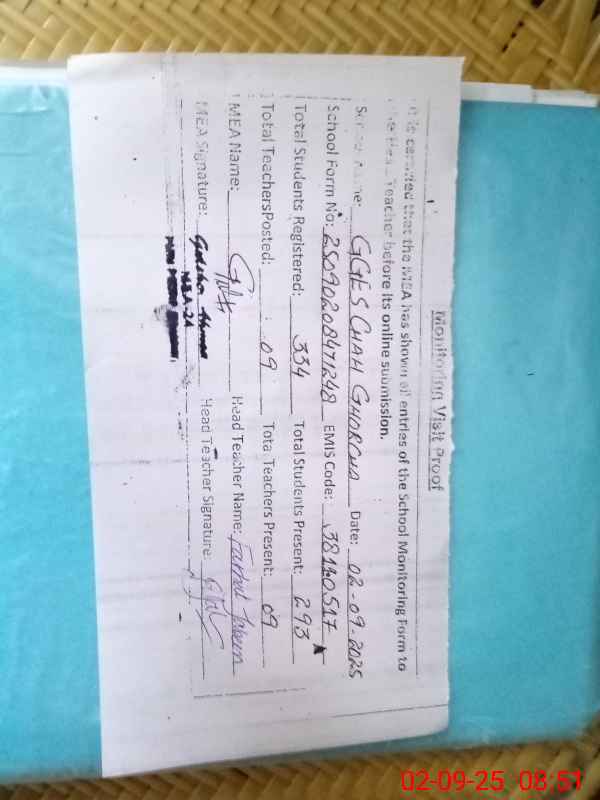 Monitoring Visit Proof
It is certified that the MEA has shown all entries of the School Monitoring Form to
the Head Teacher before its online submission.
School Name: GGES CHAH GHORCHA Date: 02-09-2025
School Form No: 25090208471248 EMIS Code: 38110517
Total Students Registered: 334 Total Students Present: 293
Total TeachersPosted: 09 Total Teachers Present: 09
MEA Name: Head Teacher Name: Farhat
MEA Signature: Head Teacher Signature:
MEA-24
02-09-25 08:51